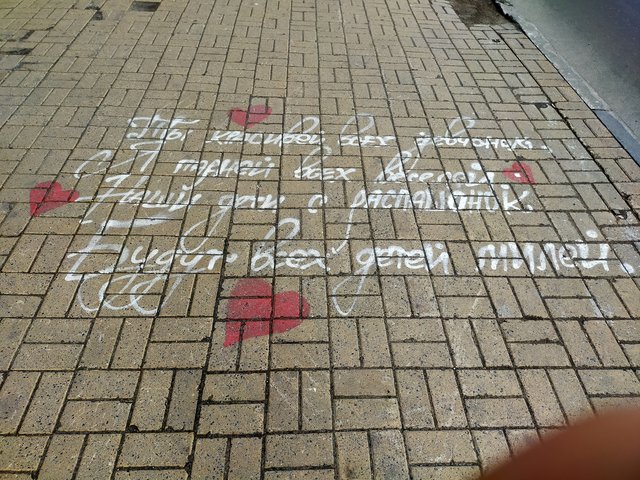 Ты красивей всех девчонок.
Я парней всех веселей.
Наши дети с распашонок.
Будут всех детей милей.